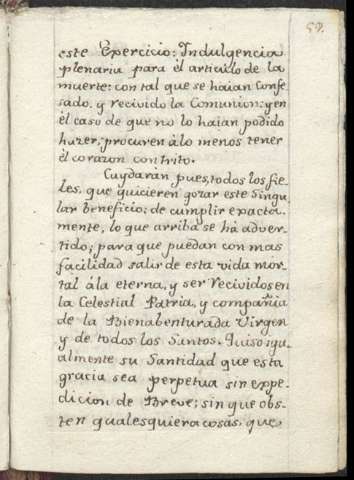 59.
este Exercicio: Indulgencia
plenaria para él articulo de la
muerte: con tal que se háian confe-
sado, y recivido la Comunion: y en
él caso de que no lo háian podido
hazer, procuren álo menos tener
él corazon contrito.
Cuydarán pues, todos los fie-
les, que quicieren gozar este Singu-
lar beneficio; de cumplir exacta-
mente, lo que arriba se há adver-
tido; para que puedan con mas
facilidad salir de esta vida mor-
tal ála eterna, y ser recividos en
la Celestial Patria, y compañia
de la Bienabenturada Virgen
y de todos los Santos. Quiso igu-
almente su Santidad que esta
gracia sea perpetua sin expe-
dicion de Breve; sin que obs-
ten qualesquiera cosas, que